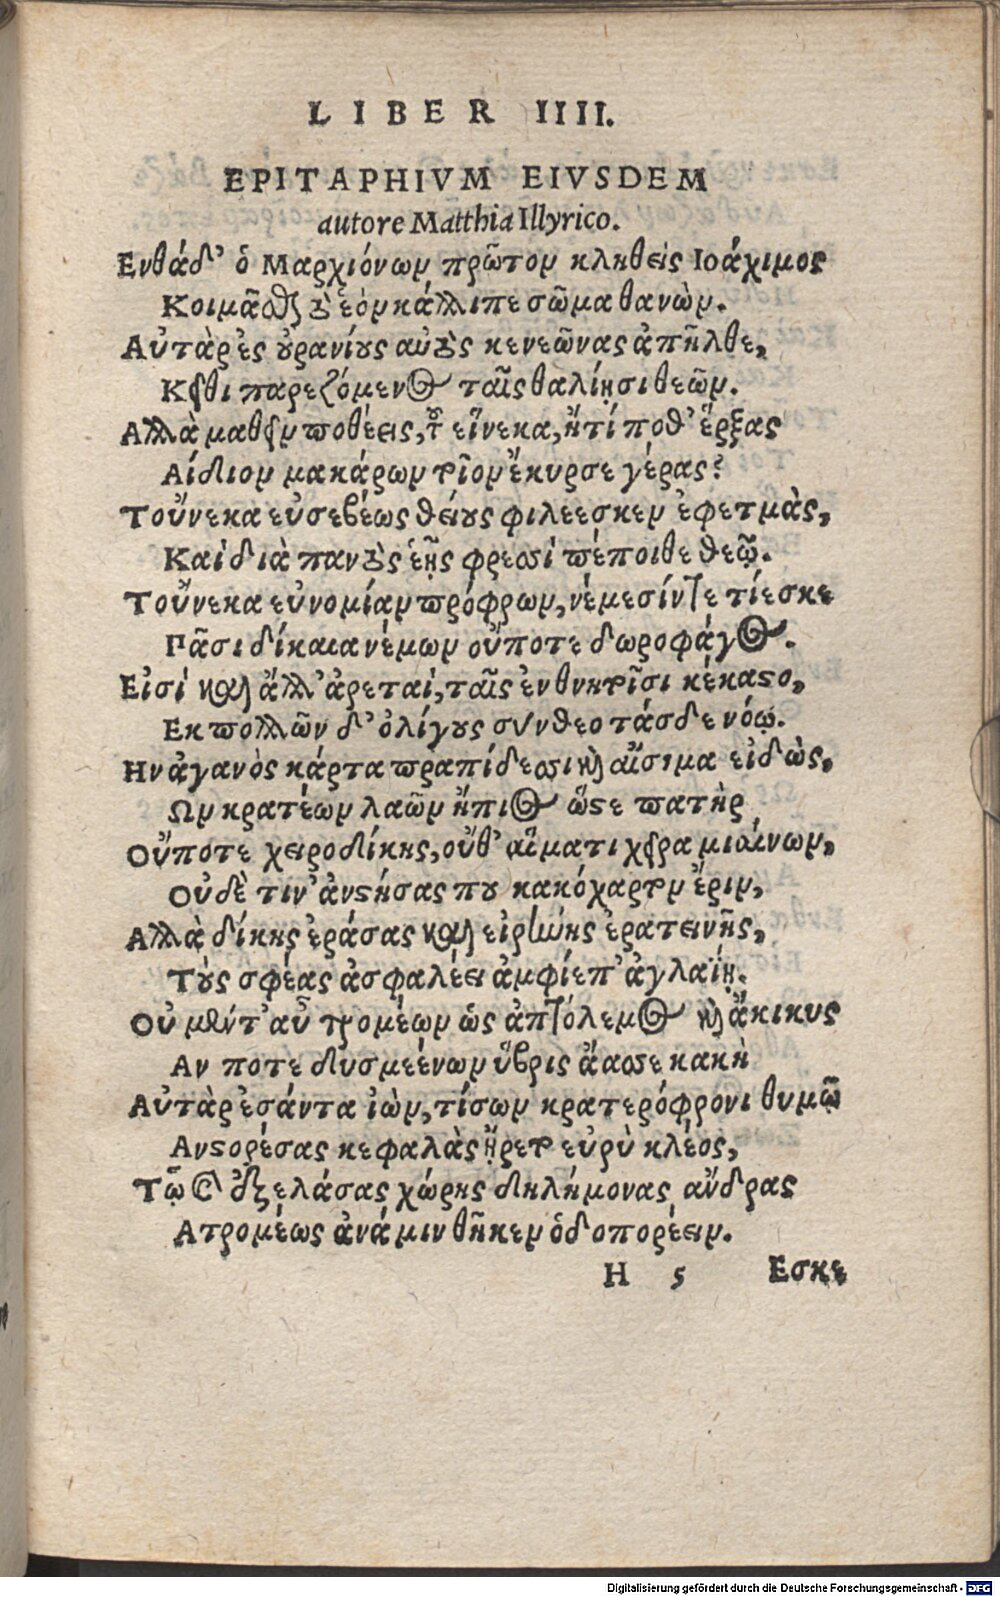 LIBER IIII.
EPITAPHIVM EIVSDEM
autore Matthia Illyrico.
Ενθάδ' ὁ Μαρχιόνων πρῶτον κληθεὶς Ιοάχιμος
Κοιμᾶται ζεὸν κάλλιπε σῶμα θανών.
Αὐτὰρ ἐς οὐρανίους αὐτὸς κενεῶνας ἀπῆλθε,
Κεῖθι παρεζόμενος ταῖς θαλίῃσι θεῶν.
Αλλὰ μαθεῖν ποθέεις, τοῦ εἵνεκα, ἤ τί ποθ' ἕρξας
Αίδιον μακάρων τοῖον ἔκυρσε γέρας;
Τοὔνεκα εὐσεβέως θείους φιλέεσκεν ἐφετμὰς,
Καὶ διὰ παντὸς ἑῇς φρεσὶ πέποιθε θεῷ.
Τοὔνεκα εὐνομίαν πρόφρων, νέμεσίν τε τίεσκε
Πᾶσι δίκαια νέμων οὔποτε δωροφάγος.
Εἰσὶ καὶ ἄλλ' ἀρεταί, ταῖς ἐν θνητοῖσι κέκαστο,
Εκ πολλῶν δ' ὀλίγους σύνθεο τάσδε νόῳ.
Ην ἀγανὸς κάρτα πραπίδεσσι καὶ αἴσιμα εἰδὼς,
Ων κρατέων λαῶν ἤπιος ὥστε πατὴρ
Οὔποτε χειροδίκης, οὔθ' αἵματι χεῖρα μιαίνων,
Οὐδὲ τιν' ἀνστήσας που κακόχαρτον ἔριν,
Αλλὰ δίκης ἐράσας καὶ εἰρήνης ἐρατεινῆς,
Τοὺς σφέας ἀσφαλέει ἀμφίεπ' ἀγλαΐῃ.
Οὐ μέντ' αὖ τρομέων ὡς ἀπτόλεμος καὶ ἄκικυς
Αν ποτε δυσμεένων ὕβρις ἄασε κακὴ
Αὐτὰρ ἐσάντα ἰὼν, τίσων κρατερόφρονι θυμῷ
Ανστορέσας κεφαλὰς ᾔρετο εὐρὺ κλέος,
Τῷ καὶ ἐξελάσας χώρης δηλήμονας ἄνδρας
Ατρομέως ἀνά μιν θῆκεν ὁδοπορέειν.
H 5 Εσκε
Digitalisierung gefördert durch die Deutsche Forschungsgemeinschaft - DFG